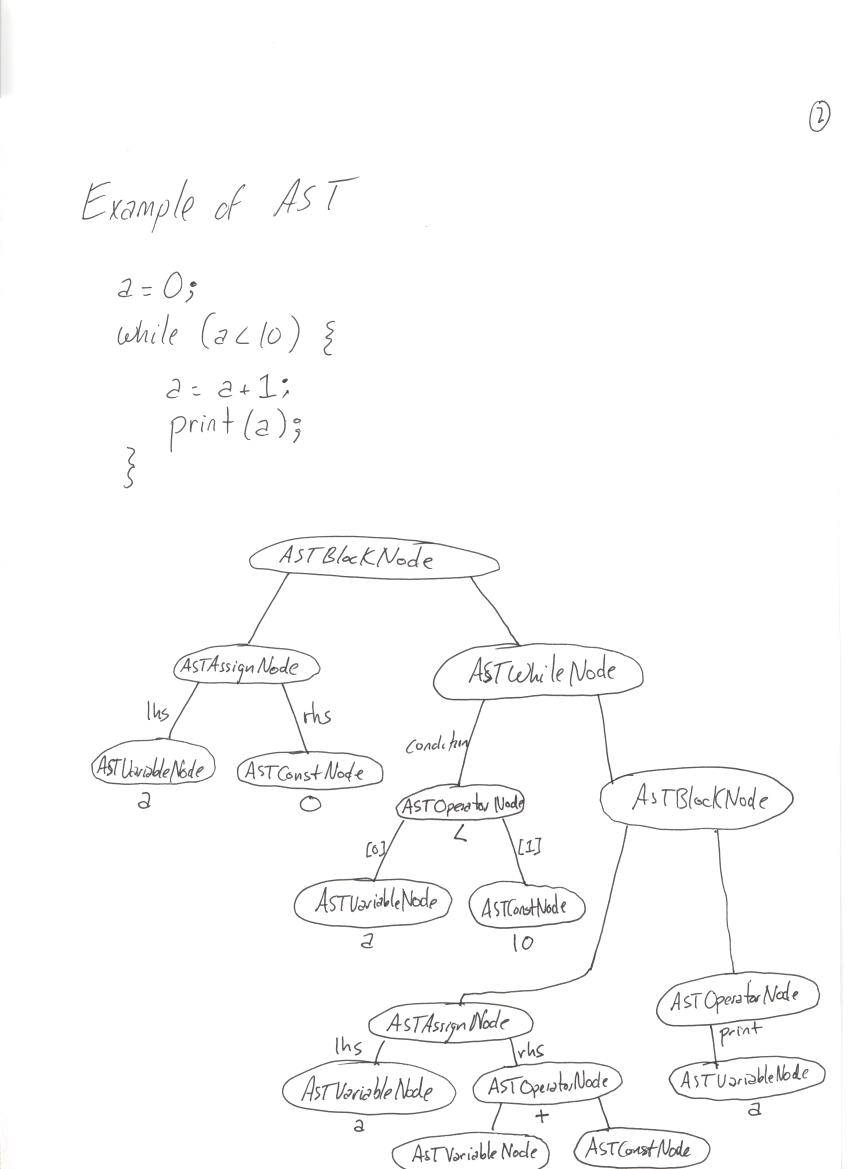 2
Example of AST
a = 0;
while (a < 10) {
a = a + 1;
print (a);
}
ASTBlockNode
ASTAssignNode
ASTWhileNode
lhs
rhs
condition
ASTVariableNode
a
ASTConstNode
0
ASTOperatorNode
<
ASTBlockNode
[0]
[1]
ASTVariableNode
a
ASTConstNode
10
ASTAssignNode
ASTOperatorNode
print
lhs
rhs
ASTVariableNode
a
ASTOperatorNode
+
ASTVariableNode
a
ASTVariableNode
ASTConstNode